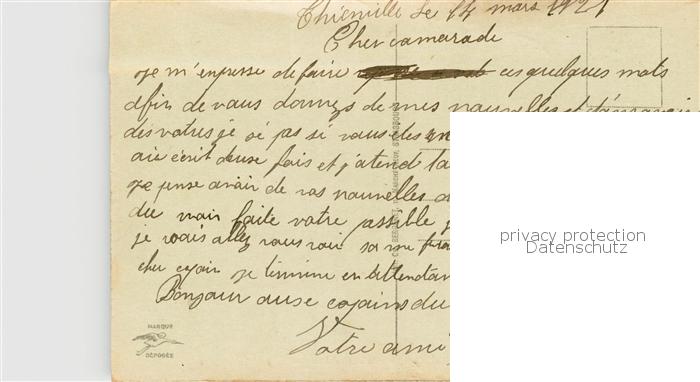 Thionville le 14 mars 1921
Cher camarade
Je m'enpresse de faire ces quelques mots
afin de vous donnez de mes nouvelles et
des votres je sé pas si vous êtes en
aié écrit deuse fois et j'atend la
Je pense avoir de vos nouvelles
du moin faite votre possible
je vais allez vous voir sa me
cher copain je termine en attendant
Bonjour ause copains du
Votre ami
MARQUE
DÉPOSÉE
privacy protection
Datenschutz